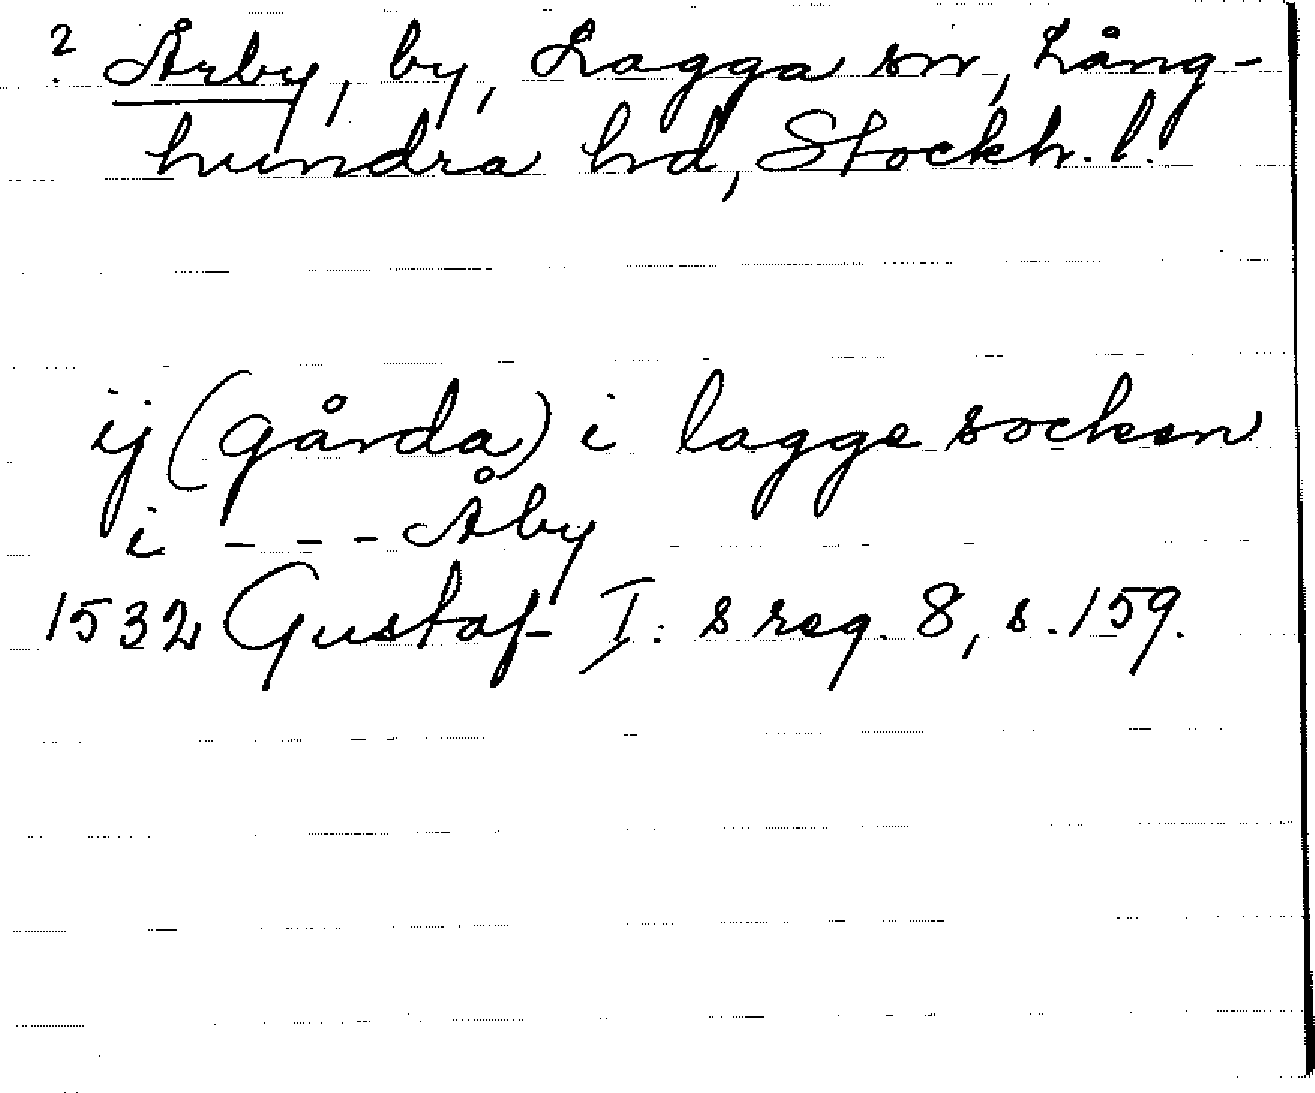 ? Årby, by, Lagga sn, Lång-
hundra hd, Stockh. l.
ij (gårda) i lagge socken
i - - - Åby
1532 Gustaf I:s reg. 8, s. 159.